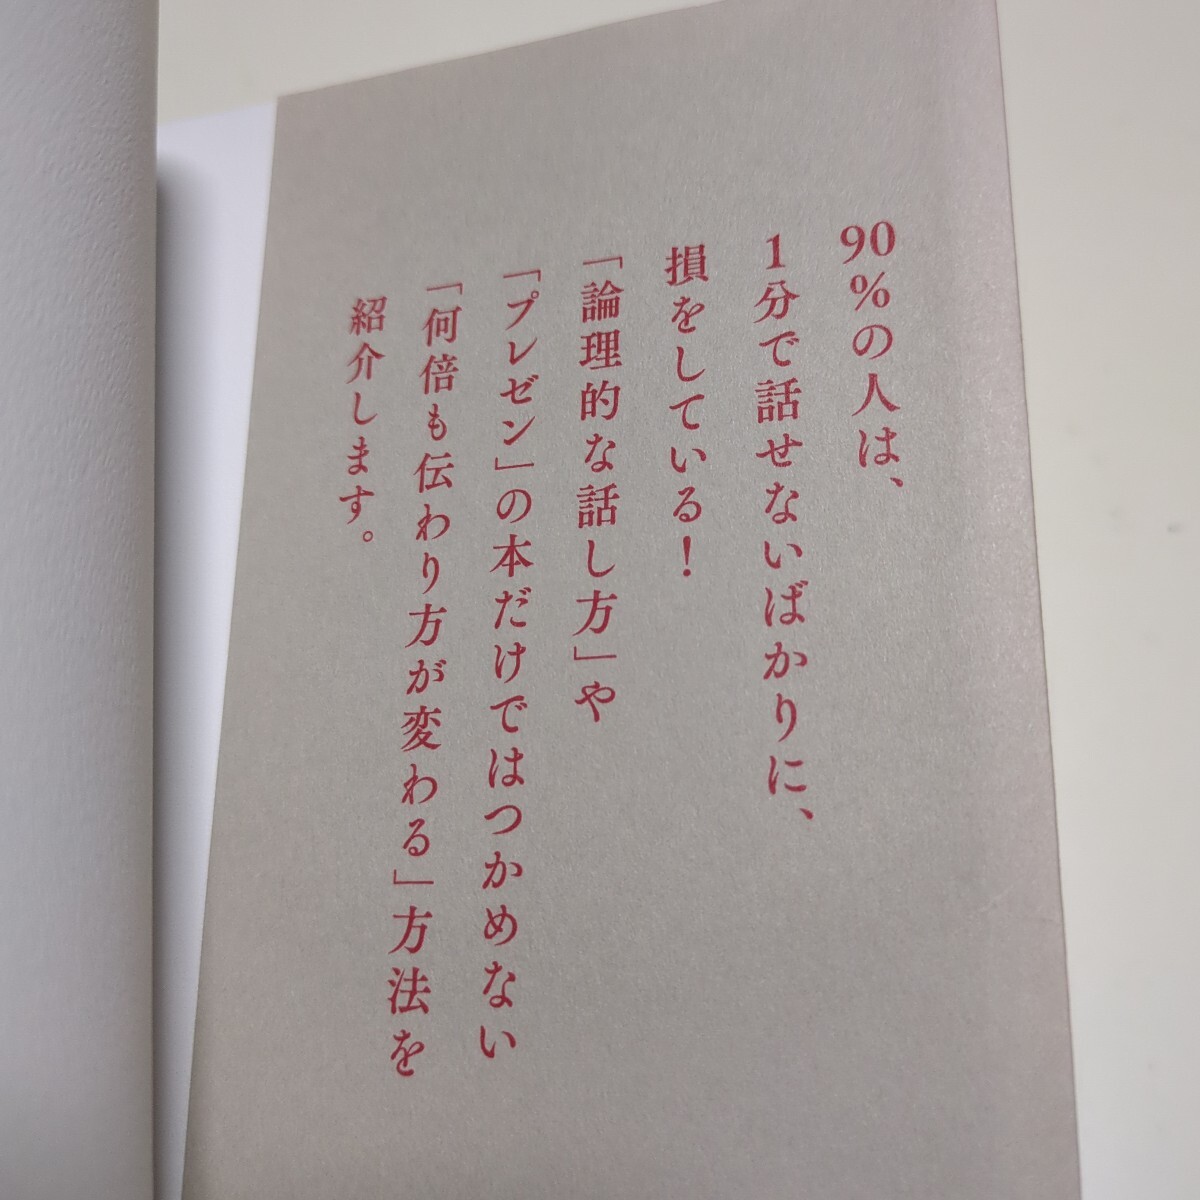 90%の人は、
1分で話せないばかりに、
損をしている!
「論理的な話し方」や
「プレゼン」の本だけではつかめない
「何倍も伝わり方が変わる」方法を
紹介します。